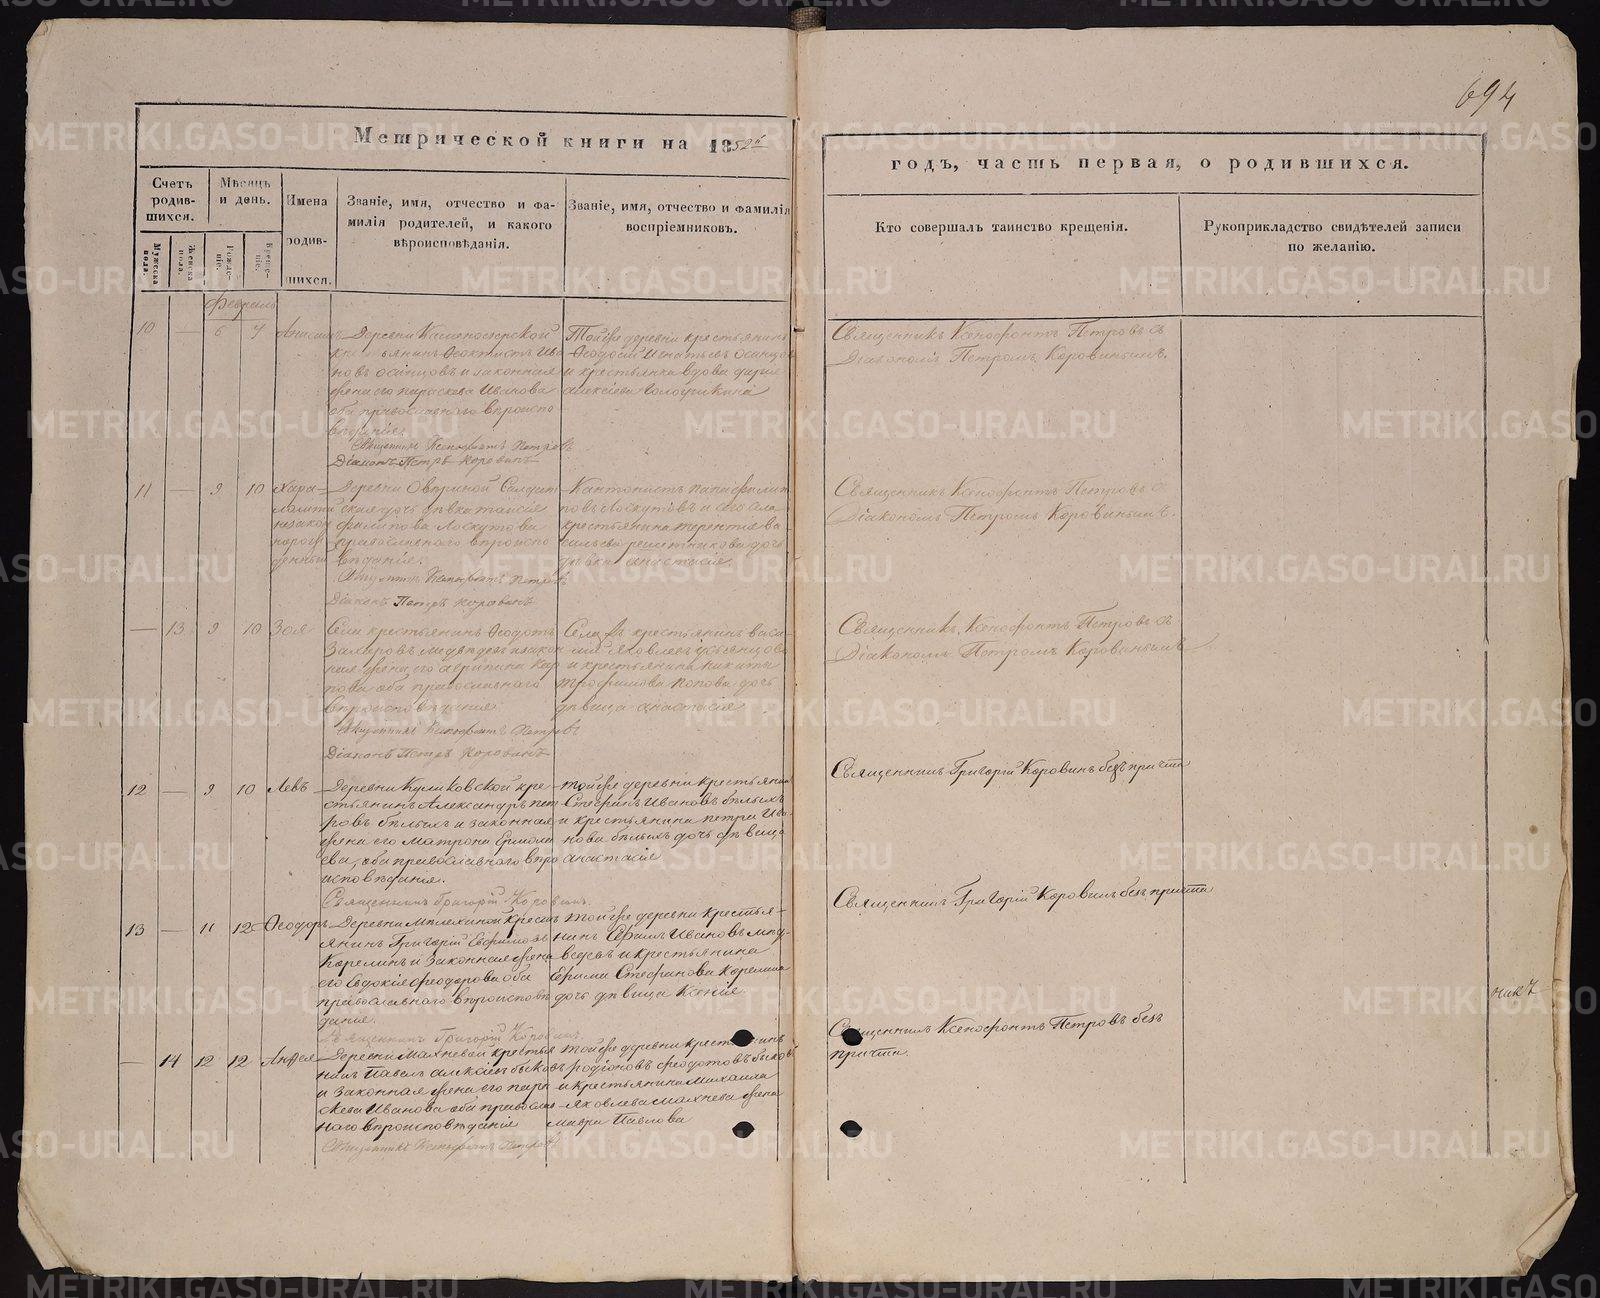 694
Метрической книги на 1852й
годъ, часть первая, о родившихся.
Счетъ родив-шихся.
Мѣсяцъ и день.
Имена родив-шихся.
Званіе, имя, отчество и фа-
милія родителей, и какого
вѣроисповѣданія.
Званіе, имя, отчество и фамилія
воспріемниковъ.
Кто совершалъ таинство крещенія.
Рукоприкладство свидѣтелей записи
по желанію.
Мужеска пола.
Женска пола.
Рожде-ніе.
Креще-ніе.
Февраль
10 — 6 7
Деревни
крестьянинъ Ѳеоктистъ Ива
новъ и законная
жена его Параскева Иванова
оба православнаго вѣроиспо
вѣданія.
Священникъ Ксенофонтъ Петровъ
Діаконъ Петръ Коровинъ
Тойже деревни крестьянинъ
Ѳеодосій Игнатьевъ
и крестьянка вдова Дарья
Алексіева
Священникъ Ксенофонтъ Петровъ съ
Діакономъ Петромъ Коровинымъ.
11 — 9 10
Хара-
лампій
незакон
норож
денный
Деревни Солдат
ская дочь дѣвка Таисія
Филипова Лоскутова
православнаго вѣроиспо
вѣданія.
Священникъ Ксенофонтъ Петровъ
Діаконъ Петръ Коровинъ
Кантонистъ
повъ Лоскутовъ и
крестьянина Терентія Ва-
сильева Решетникова дочь
дѣвка Анастасія.
Священникъ Ксенофонтъ Петровъ съ
Діакономъ Петромъ Коровинымъ.
— 13 9 10 Зоя
Села крестьянинъ Ѳеодотъ
Захаровъ Медвѣдевъ и закон
ная жена его Агрипина Кар
пова оба православнаго
вѣроисповѣданія.
Священникъ Ксенофонтъ Петровъ
Діаконъ Петръ Коровинъ
крестьянинъ Васи-
лій Яковлевъ
и крестьянина Никиты
Трофимова Попова дочь
дѣвица Анастасія
Священникъ Ксенофонтъ Петровъ съ
Діакономъ Петромъ Коровинымъ
12 — 9 10 Левъ
Деревни Куликовской кре-
стьянинъ Александръ Пет
ровъ Бѣлыхъ и законная
жена его Матрона Ермола
ева, оба православнаго вѣро
исповѣданія.
Священникъ Григорій Коровинъ.
Тойже деревни крестьянинъ
Стефанъ Ивановъ Бѣлыхъ
и крестьянина Петра Ива
нова Бѣлыхъ дочь дѣвица
Анастасія
Священникъ Григорій Коровинъ безъ причта
13 — 11 12 Ѳеодоръ
Деревни Мплехиной крест
янинъ Григорій Евфимовъ
Корелинъ и законная жена
его Евдокія Феодорова оба
православнаго вѣроисповѣ
данія.
Священникъ Григорій Коровинъ.
Тойже деревни крестья-
нинъ Ефимъ Ивановъ Мед-
ведевъ и крестьянина
Ефима Стефанова Корелина
дочь дѣвица Ксенія
Священникъ Григорій Коровинъ безъ причта
— 14 12 12 Анфея
Деревни Махневой крестья
нинъ Павелъ Быковъ
и законная жена его Пара
скева Иванова оба правосла
внаго вѣроисповѣданія
Священникъ Ксенофонтъ Петровъ
Тойже деревни крестьянинъ
Родіонъ Феодотовъ Быковъ
и крестьянина Михаила
Яковлева Махнева жена
Мавра Павлова
Священникъ Ксенофонтъ Петровъ безъ
причта.
никъ
METRIKI.GASO-URAL.RU